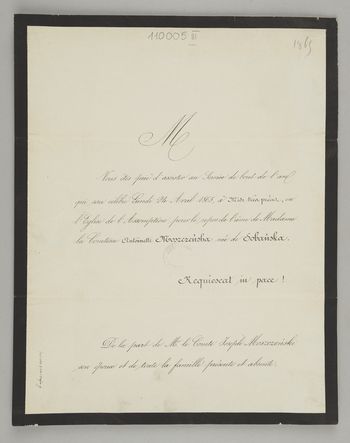 110005 III
1865
M
Vous êtes prié d'assister au Service de bout de l'an
qui sera célébré Lundi 24 Avril 1865, à Midi très précis, en
l'Eglise de l'Assomption pour le repos de l'âme de Madame
la Comtesse Antoinette Moszczeńska née de Sobańska.
Requiescat in pace !
De la part de Mr. le Comte Joseph Moszczeński
son époux et de toute la famille présente et absente.